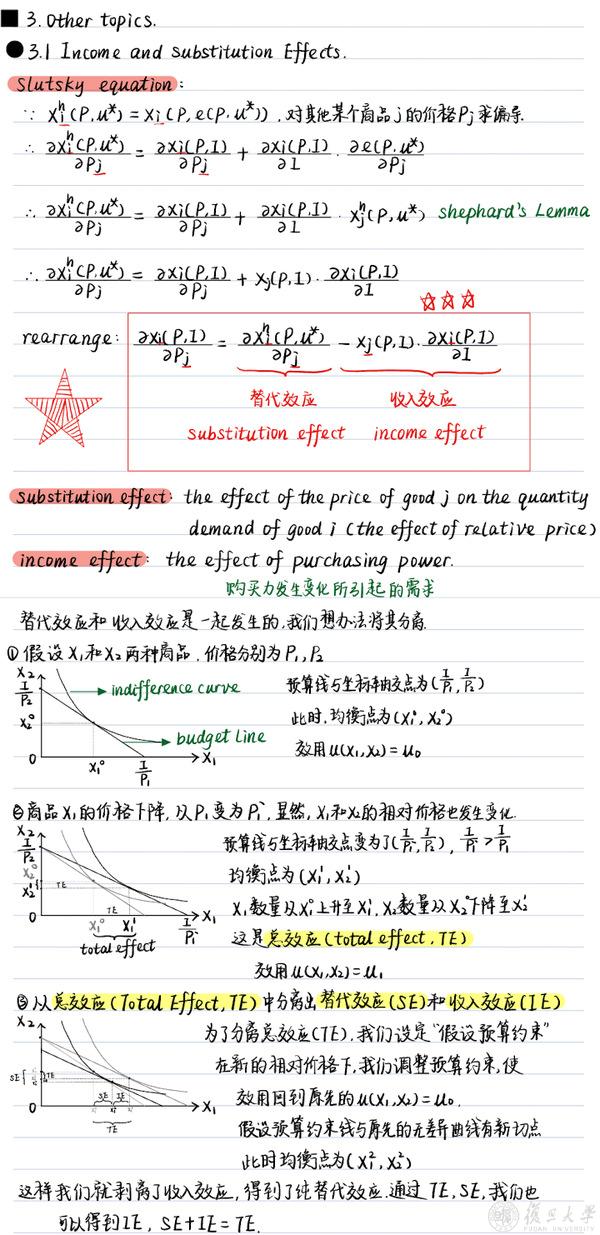 ■ 3. Other topics.
● 3.1 Income and substitution Effects.
Slutsky equation:
∵ xᵢʰ(P,u*) = xᵢ(P, e(P,u*)). 对其他某个商品j的价格Pj求偏导.
∴ ∂xᵢʰ(P,u*)/∂Pj = ∂xi(P,I)/∂Pj + ∂xi(P,I)/∂I · ∂e(P,u*)/∂Pj
∴ ∂xᵢʰ(P,u*)/∂Pj = ∂xi(P,I)/∂Pj + ∂xi(P,I)/∂I · xⱼʰ(P,u*) shephard's Lemma
∴ ∂xᵢʰ(P,u*)/∂Pj = ∂xi(P,I)/∂Pj + xj(P,I) · ∂xi(P,I)/∂I
rearrange: ∂xi(P,I)/∂Pj = ∂xᵢʰ(P,u*)/∂Pj − xj(P,I) · ∂xi(P,I)/∂I
替代效应 收入效应
substitution effect income effect
substitution effect: the effect of the price of good j on the quantity
demand of good i (the effect of relative price)
income effect: the effect of purchasing power.
购买力发生变化所引起的需求
替代效应和收入效应是一起发生的,我们想办法将其分离.
① 假设X₁和X₂两种商品,价格分别为P₁,P₂
X₂
I/P₂
indifference curve
预算线与坐标轴交点为(I/P₁, I/P₂)
X₂⁰
此时,均衡点为(X₁⁰, X₂⁰)
budget line
效用u(X₁,X₂)=u₀
0 X₁⁰ I/P₁ X₁
② 商品X₁的价格下降,从P₁变为P₁',显然,X₁和X₂的相对价格也发生变化.
X₂
I/P₂
预算线与坐标轴交点变为了(I/P₁', I/P₂), I/P₁' > I/P₁
X₂⁰
X₂¹ TE
均衡点为(X₁¹, X₂¹)
TE
X₁数量从X₁⁰上升至X₁¹,X₂数量从X₂⁰下降至X₂¹
0 X₁⁰ X₁¹ I/P₁' X₁
total effect
这是总效应(total effect, TE)
效用u(X₁,X₂)=u₁
③ 从总效应(Total Effect, TE)中分离出替代效应(SE)和收入效应(IE)
X₂
为了分离总效应(TE),我们设定“假设预算约束”
在新的相对价格下,我们调整预算约束,使
SE TE
SE IE
效用回到原先的u(X₁,X₂)=u₀.
0 X₁
TE
假设预算约束线与原先的无差异曲线有新切点
此时均衡点为(X₁², X₂²)
这样我们就剥离了收入效应,得到了纯替代效应.通过TE,SE,我们也
可以得到IE, SE+IE=TE.
復旦大学
FUDAN UNIVERSITY